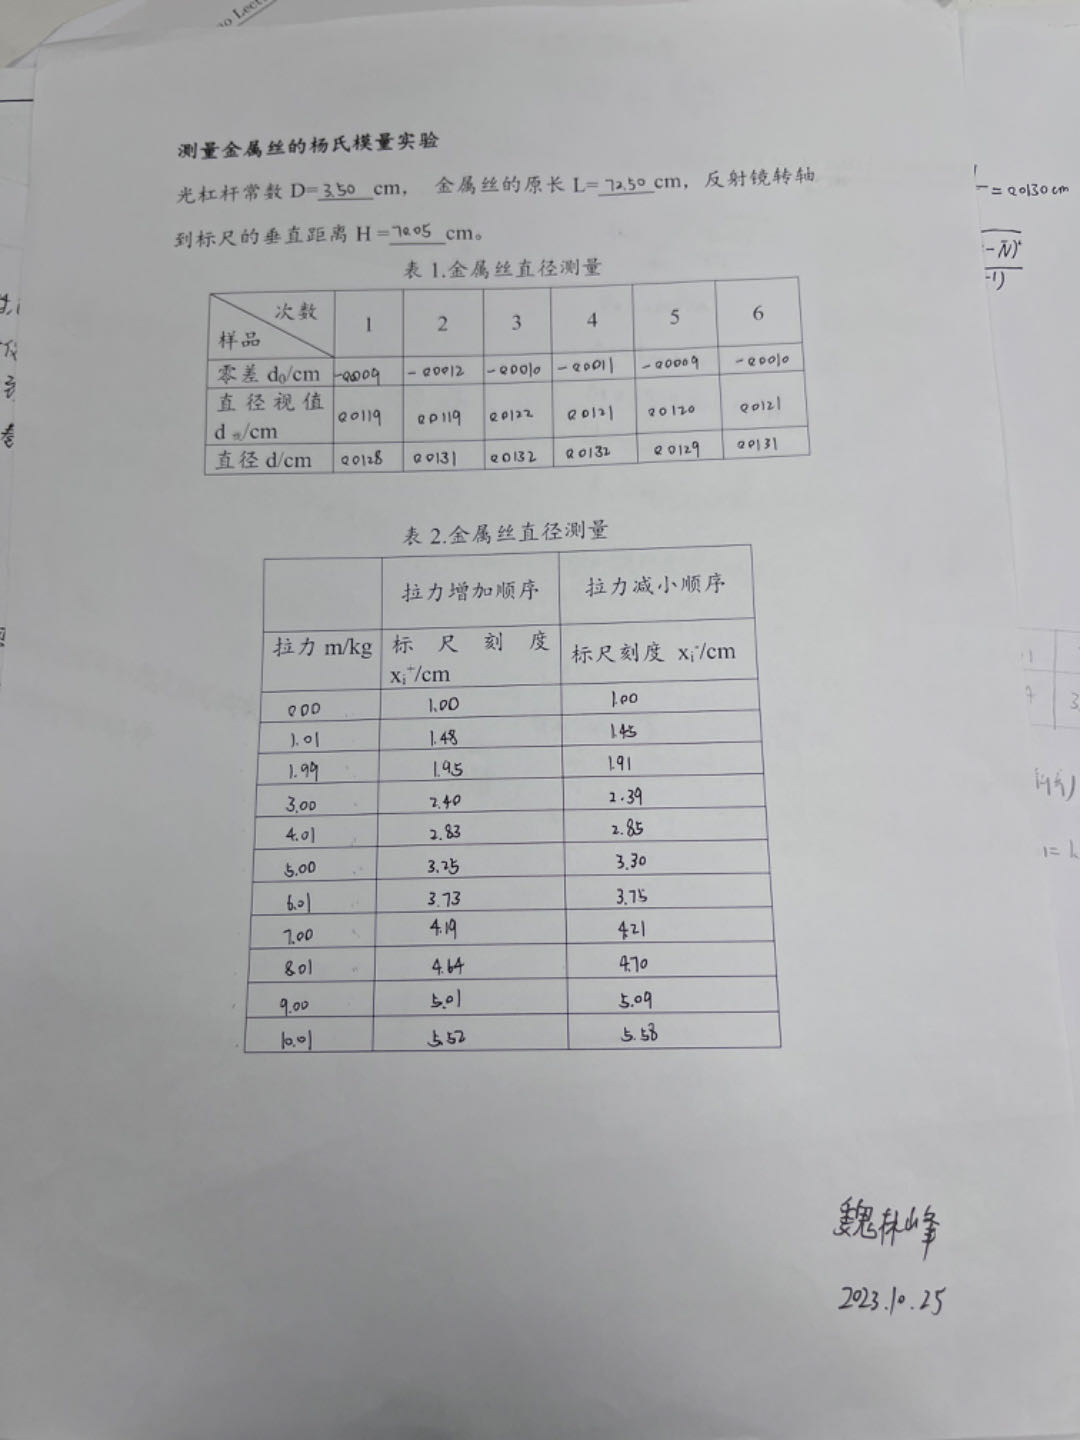 no Lect
测量金属丝的杨氏模量实验
光杠杆常数 D=3.50cm, 金属丝的原长 L=72.50cm, 反射镜转轴
=0.0130cm
到标尺的垂直距离 H=70.05cm。
表 1.金属丝直径测量
次数 1 2 3 4 5 6
样品
零差 d₀/cm -0.0009 -0.0012 -0.0010 -0.0011 -0.0009 -0.0010
直径视值 0.0119 0.0119 0.0122 0.0121 0.0120 0.0121
d 视/cm
直径 d/cm 0.0128 0.0131 0.0132 0.0132 0.0129 0.0131
表 2.金属丝直径测量
拉力增加顺序 拉力减小顺序
拉力 m/kg 标尺刻度 标尺刻度 xᵢ⁻/cm
xᵢ⁺/cm
0.00 1.00 1.00
1.01 1.48 1.45
1.99 1.95 1.91
3.00 2.40 2.39
4.01 2.83 2.85
5.00 3.25 3.30
6.01 3.73 3.75
7.00 4.19 4.21
8.01 4.64 4.70
9.00 5.01 5.09
10.01 5.52 5.58
魏林峰
2023.10.25